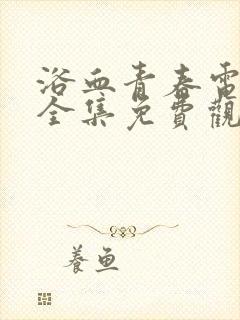 浴血青春電
全集免費觀
養魚